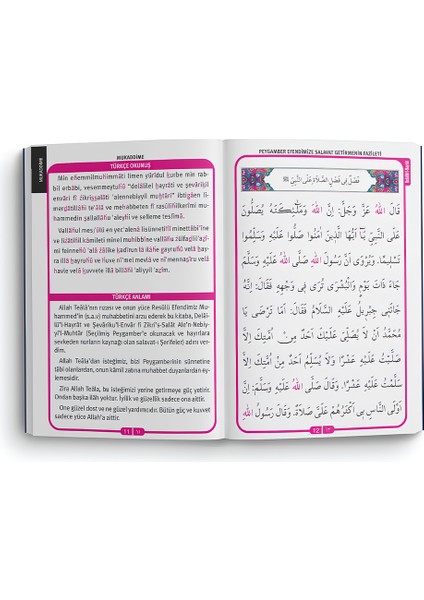 MUKADDİME
MUKADDİME
TÜRKÇE OKUNUŞ
Min efemnilmuhimmâti limen yürîdul ḳurbe min rab-
bil erbâbi, vesemmeytuhû "delâilel ḫayrâti ve şevâriḳil
envâri fî źikriṣṣalâti 'alennebiyyil muḫtâri" ibtiġâen li
merḍâtillâhi te'âlâ ve meḥabbeten fî rasûlihilkerîmi
muhammedin ṣallallâhu 'aleyhi ve selleme teslîmâ.
TÜRKÇE ANLAMI
Allah Teâlâ'nın rızası ve onun yüce Resûlü Efendimiz Mu-
hammed'in (s.a.v.) muhabbetini arzu ederek bu kitaba, Delâi-
lü'l-Hayrât ve Şevâriku'l-Envâr fî Zikri's-Salât Ale'n-Nebiy-
yi'l-Muhtâr (Seçilmiş Peygamber'e okunacak ve hayırlara
sevkeden nurların kaynağı olan salavat-ı Şerifeler) adını ver-
dim.
Allah Teâlâ'dan isteğimiz, bizi Peygamberinin sünnetine
tâbi olanlardan, onun kâmil zatına muhabbet duyanlardan ey-
lemesidir.
Zira Allah Teâlâ, bu isteğimizi yerine getirmeye güç yetirir.
Ondan başka ilâh yoktur. İyilik ve güzellik sadece ona aittir.
O ne güzel dost ve ne güzel yardımcıdır. Bütün güç ve kuvvet
sadece yüce Allah'a aittir.
11 ١١
PEYGAMBER EFENDİMİZE SALAVAT GETİRMENİN FAZİLETİ
فَصْلٌ فِي فَضْلِ الصَّلَاةِ عَلَى النَّبِيِّ ﷺ
قَالَ اللهُ عَزَّ وَجَلَّ: إِنَّ اللهَ وَمَلٰٓئِكَتَهُ يُصَلُّونَ
عَلَى النَّبِيِّ يَٓا أَيُّهَا الَّذِينَ اٰمَنُوا صَلُّوا عَلَيْهِ وَسَلِّمُوا
تَسْلِيمًا. وَيُرْوٰى أَنَّ رَسُولَ اللهِ صَلَّى اللهُ عَلَيْهِ وَسَلَّمَ
جَٓاءَ ذَاتَ يَوْمٍ وَالْبُشْرٰى تُرٰى فِي وَجْهِهِ فَقَالَ: إِنَّهُ
جَٓاءَنِي جِبْرِيلُ عَلَيْهِ السَّلَامُ فَقَالَ: أَمَا تَرْضٰى يَا
مُحَمَّدُ أَنْ لَا يُصَلِّيَ عَلَيْكَ أَحَدٌ مِنْ أُمَّتِكَ إِلَّا
صَلَّيْتُ عَلَيْهِ عَشْرًا وَلَا يُسَلِّمَ أَحَدٌ مِنْ أُمَّتِكَ إِلَّا
سَلَّمْتُ عَلَيْهِ عَشْرًا. وَقَالَ صَلَّى اللهُ عَلَيْهِ وَسَلَّمَ: إِنَّ
أَوْلَى النَّاسِ بِي أَكْثَرُهُمْ عَلَيَّ صَلَاةً. وَقَالَ رَسُولُ اللهِ
12 ١٢